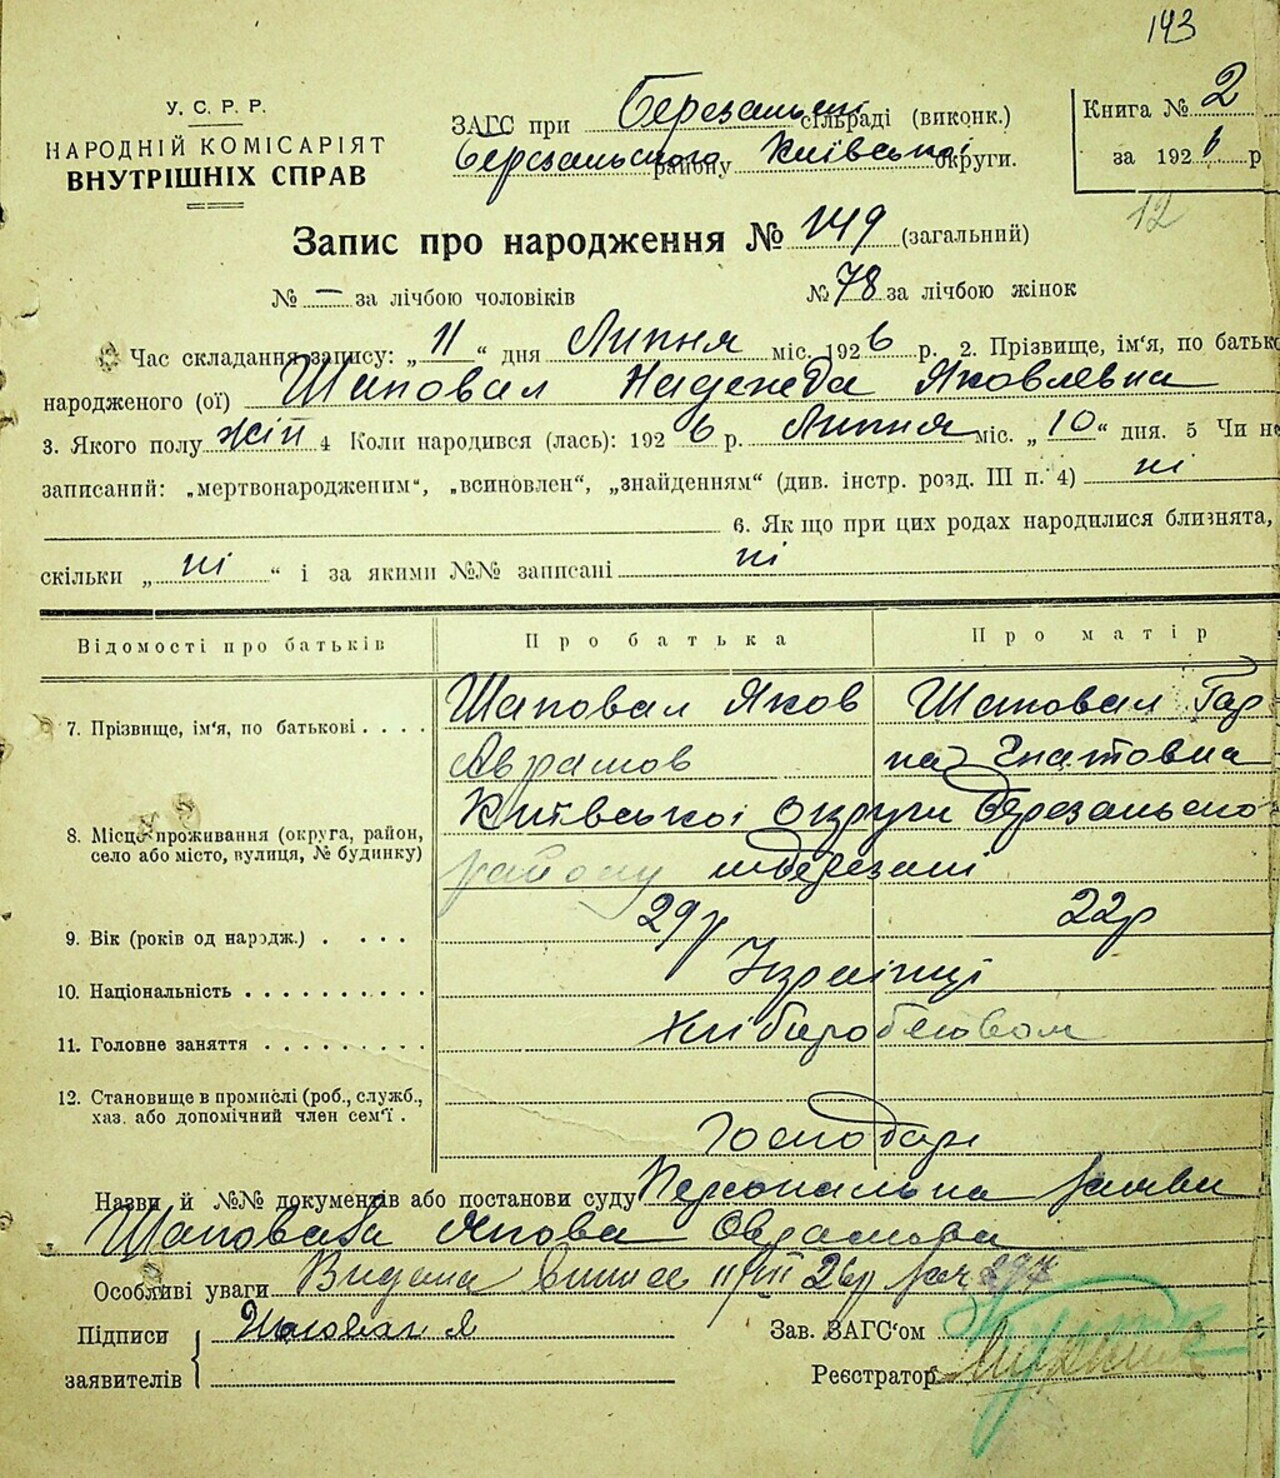 143
У. С. Р. Р.
НАРОДНІЙ КОМІСАРІЯТ
ВНУТРІШНІХ СПРАВ
ЗАГС при Березанські сільраді (виконк.)
Березанського району Київської округи.
Книга № 2
за 1926 р
12
Запис про народження № 149 (загальний)
№ — за лічбою чоловіків № 78 за лічбою жінок
Час складання запису: „11“ дня Липня міс. 1926 р. 2. Прізвище, ім‘я, по батько
народженого (ої) Шаповал Надежда Яковлевна
3. Якого полу жін 4 Коли народився (лась): 1926 р. Липня міс. „10“ дня. 5 Чи не
записаний: „мертвонародженим“, „всиновлен“, „знайденням“ (див. інстр. розд. III п. 4) ні
6. Якщо при цих родах народилися близнята,
скільки „ні“ і за якими №№ записані ні
Відомості про батьків Про батька Про матір
7. Прізвище, ім‘я, по батькові . . . . Шаповал Яков Шаповал Гар
Аврамов па Гнатовна
8. Місце проживання (округа, район, село або місто, вулиця, № будинку) Київської округи Березансько
району мБерезані
9. Вік (років од народж.) . . . . 29р 22р
10. Національність . . . . . . . . . . Українці
11. Головне заняття . . . . . . . . . Хлібороб
12. Становище в промислі (роб., служб., хаз. або допомічний член сем‘ї .
Господарі
Назви й №№ документів або постанови суду Персональна заява
Шаповала Якова Оврамова
Особливі уваги Видана 11/VII 26р 297
Підписи
заявителів
Шаповал Я
Зав. ЗАГС‘ом
Реєстратор